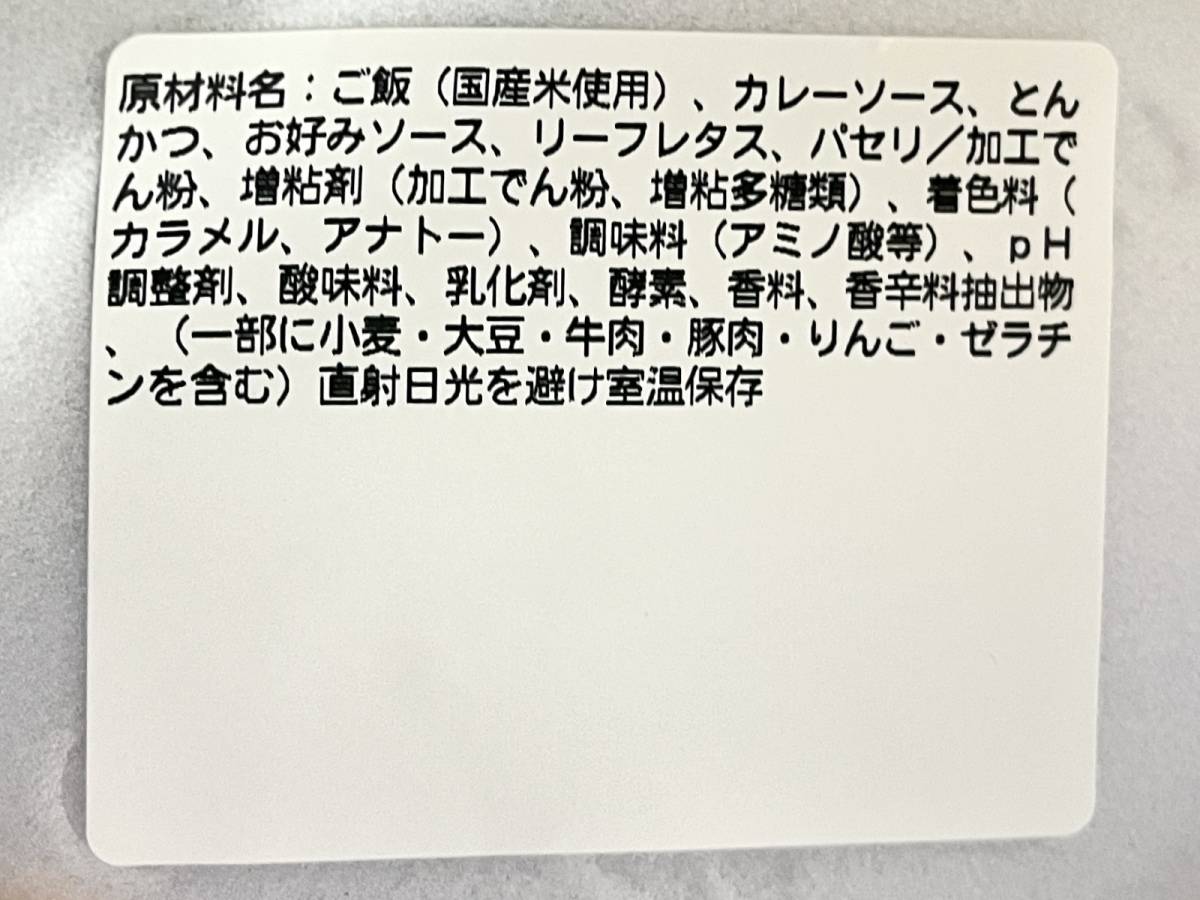 原材料名：ご飯（国産米使用）、カレーソース、とん
かつ、お好みソース、リーフレタス、パセリ／加工で
ん粉、増粘剤（加工でん粉、増粘多糖類）、着色料（
カラメル、アナトー）、調味料（アミノ酸等）、ｐＨ
調整剤、酸味料、乳化剤、酵素、香料、香辛料抽出物
、（一部に小麦・大豆・牛肉・豚肉・りんご・ゼラチ
ンを含む）直射日光を避け室温保存